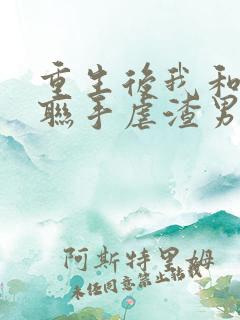 重生後我和
聯手虐渣男
阿斯特里姆
未经同意禁止转载